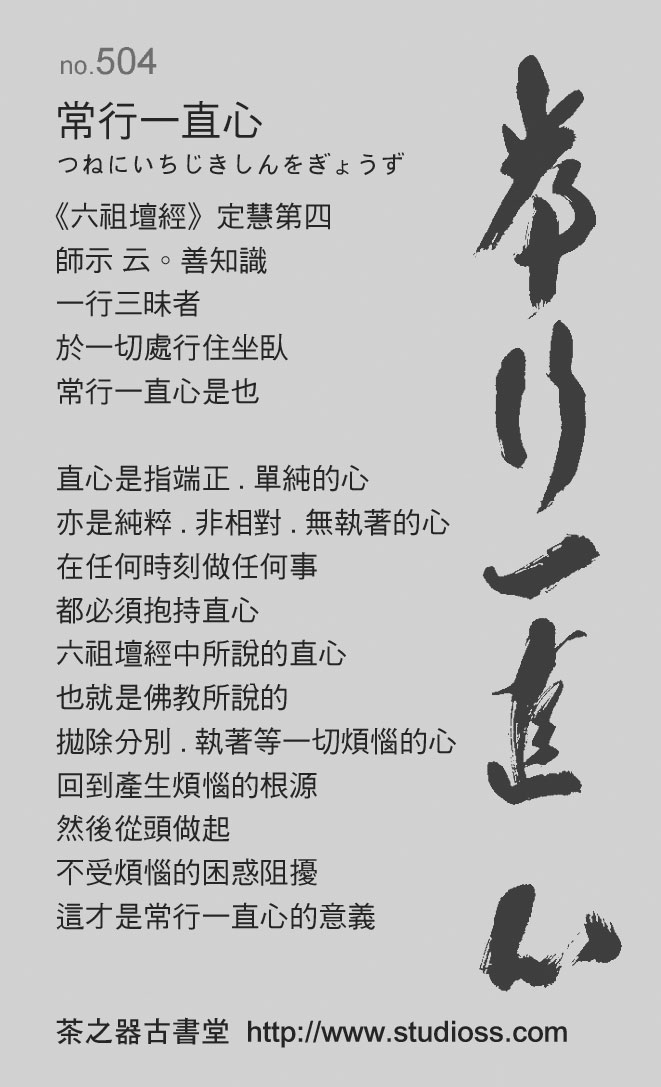 no.504
常行一直心
つねにいちじきしんをぎょうず
《六祖壇經》定慧第四
師示 云。善知識
一行三昧者
於一切處行住坐臥
常行一直心是也
直心是指端正 . 單純的心
亦是純粹 . 非相對 . 無執著的心
在任何時刻做任何事
都必須抱持直心
六祖壇經中所說的直心
也就是佛教所說的
拋除分別 . 執著等一切煩惱的心
回到產生煩惱的根源
然後從頭做起
不受煩惱的困惑阻擾
這才是常行一直心的意義
茶之器古書堂 http://www.studioss.com
常行一直心